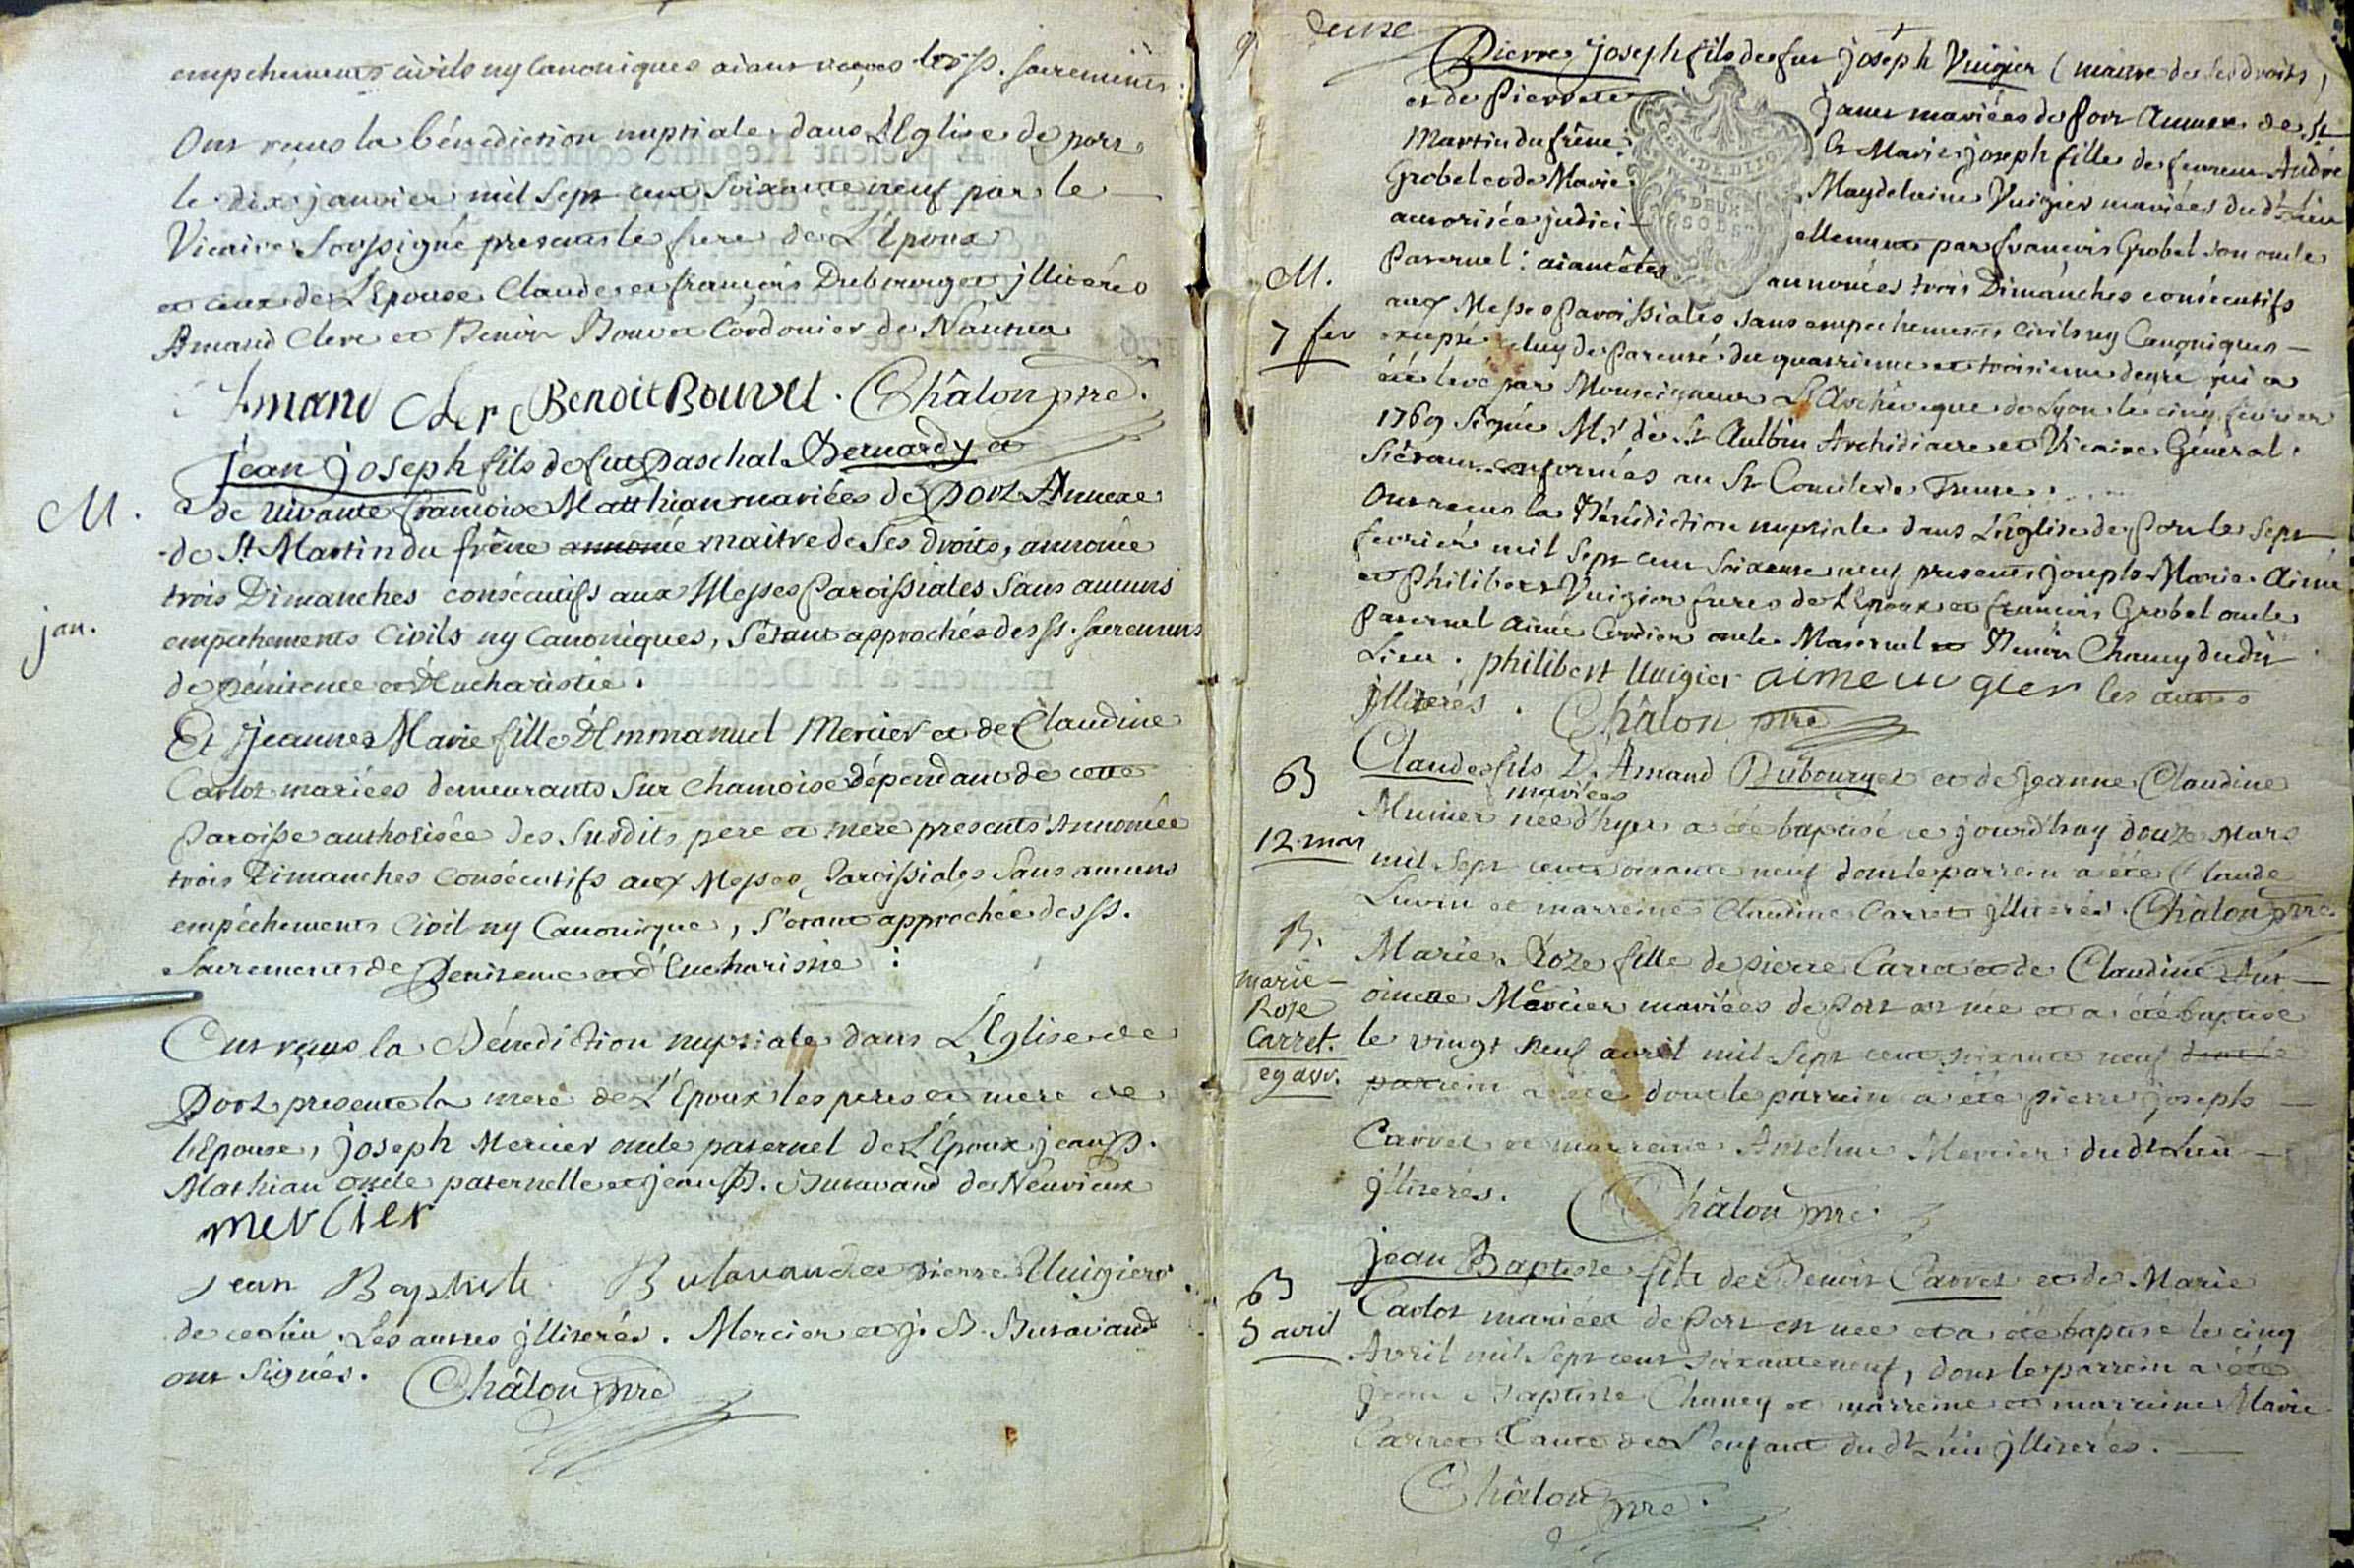 empechements civils ny Canoniques aiant reçues les SS. sacrements
Ont reçus la bénédiction nuptiale dans L'Eglise de port
le dix janvier mil sept cent soixante neuf par le
Vicaire Soussigné presents le frere de L'Epoux
et ceux de L'Epouse Claude et françois Dubourget jlliterés
Amand Clerc et Benoit Bouvet Cordonier de Nantua
Amand Clerc Benoit Bouvet. Châlon ptre.
jean joseph fils de fut Paschal Bernardy et
de vivante françoise Matthian mariées de Port Annexe
M.
de St Martin du frêne annoncé maitre de ses droits, annoncée
trois Dimanches consécutifs aux Messes Paroissiales Sans aucuns
jan.
empechements Civils ny Canoniques, S'étant approchés des SS. sacrements
de Pénitence et d'Eucharistie.
Et Jeanne Marie fille d'Emmanuel Mercier et de Claudine
Carlot mariées demeurants Sur Chamoise dépendant de cette
Paroisse authorisée des Susdits pere et mere presents Annoncée
trois Dimanches Consécutifs aux Messes Paroissiales Sans aucuns
empéchements Civil ny Canonique, S'étant approchée des SS.
Sacrements de Penitence et d'Eucharistie :
Ont reçus la Bénédiction nuptiale dans L'Eglise de
Port presente la mere de L'Epoux les peres et mere de
l'Epouse, joseph Mercier oncle paternel de L'Epoux jean B.
Mathian oncle paternelle et jean B. Butavand de Neuvieux
mercier
jean Baptiste Butavand et pierre Vuigier
de ce Lieu. Les autres jlliterés. Mercier et j. B. Butavand
ont signés. Châlon ptre
Pierre joseph fils de fut joseph Vuigier (maitre de ses droits,
et de Pierrette Janet mariées de Port Annexe de St
Martin du frêne. Et Marie joseph fille de feu André
Grobel et de Marie Magdelaine Vuigier mariées dudt Lieu
autorisée judiciellement par françois Grobel son oncle
Paternel : aiant étés annoncés trois Dimanches consécutifs
M.
aux Messes Paroissiales sans empechements Civils ny Canoniques
7 fev
excepté celuy de Parenté du quatrieme et troisieme degré qui a
été levé par Monseigneur L'Archêveque de Lyon le cinq fevrier
1769 Signé Mr de St Aulbin Archidiacre et Vicaire Général.
S'étant conformés au St Concile de Trente.
Ont reçus la Bénédiction nuptiale dans L'Eglise de Port le sept
fevrier mil Sept cent soixante neuf presents joseph Marie. Aimé
et Philibert Vuigier freres de L'Epoux et françois Grobel oncle
Paternel Aimé Cordier oncle Maternel et Benoit Chaney dudit
Lieu. philibert Vuigier aime uigier les autres
jlliterés. Châlon ptre
B
Claude fils D'Amand Dubourget et de Jeanne Claudine
mariées
Munier née d'hyer a été baptisé ce jourdhuy douze Mars
12 mar
mil Sept cent soixante neuf dont le parrein a été Claude
Luvin et marreine Claudine Carret jlliterés. Châlon ptre
B.
Marie Roze fille de pierre Carret et de Claudine Ant-
marie-
oinette Mercier mariées de Port est née et a été baptisée
Roze
Carret.
le vingt neuf avril mil Sept cent soixante neuf dont le
29 avr.
parrein a été dont le parrein a été pierre joseph
Carret et marreine Anthelme Mercier dudt Lieu
jlliterés. Châlon ptre.
jean Baptiste fils de Benoit Carret et de Marie
B
Carlot mariées de Port est née et a été baptisé le cinq
5 avril
Avril mil Sept cent soixante neuf, dont le parrein a été
jean Baptiste Chaney et marreine et marreine Marie
Carret Tante de L'enfant du dt Lieu jlliterés.
Châlon ptre.
GEN. DE DIJON
DEUX
SOLS